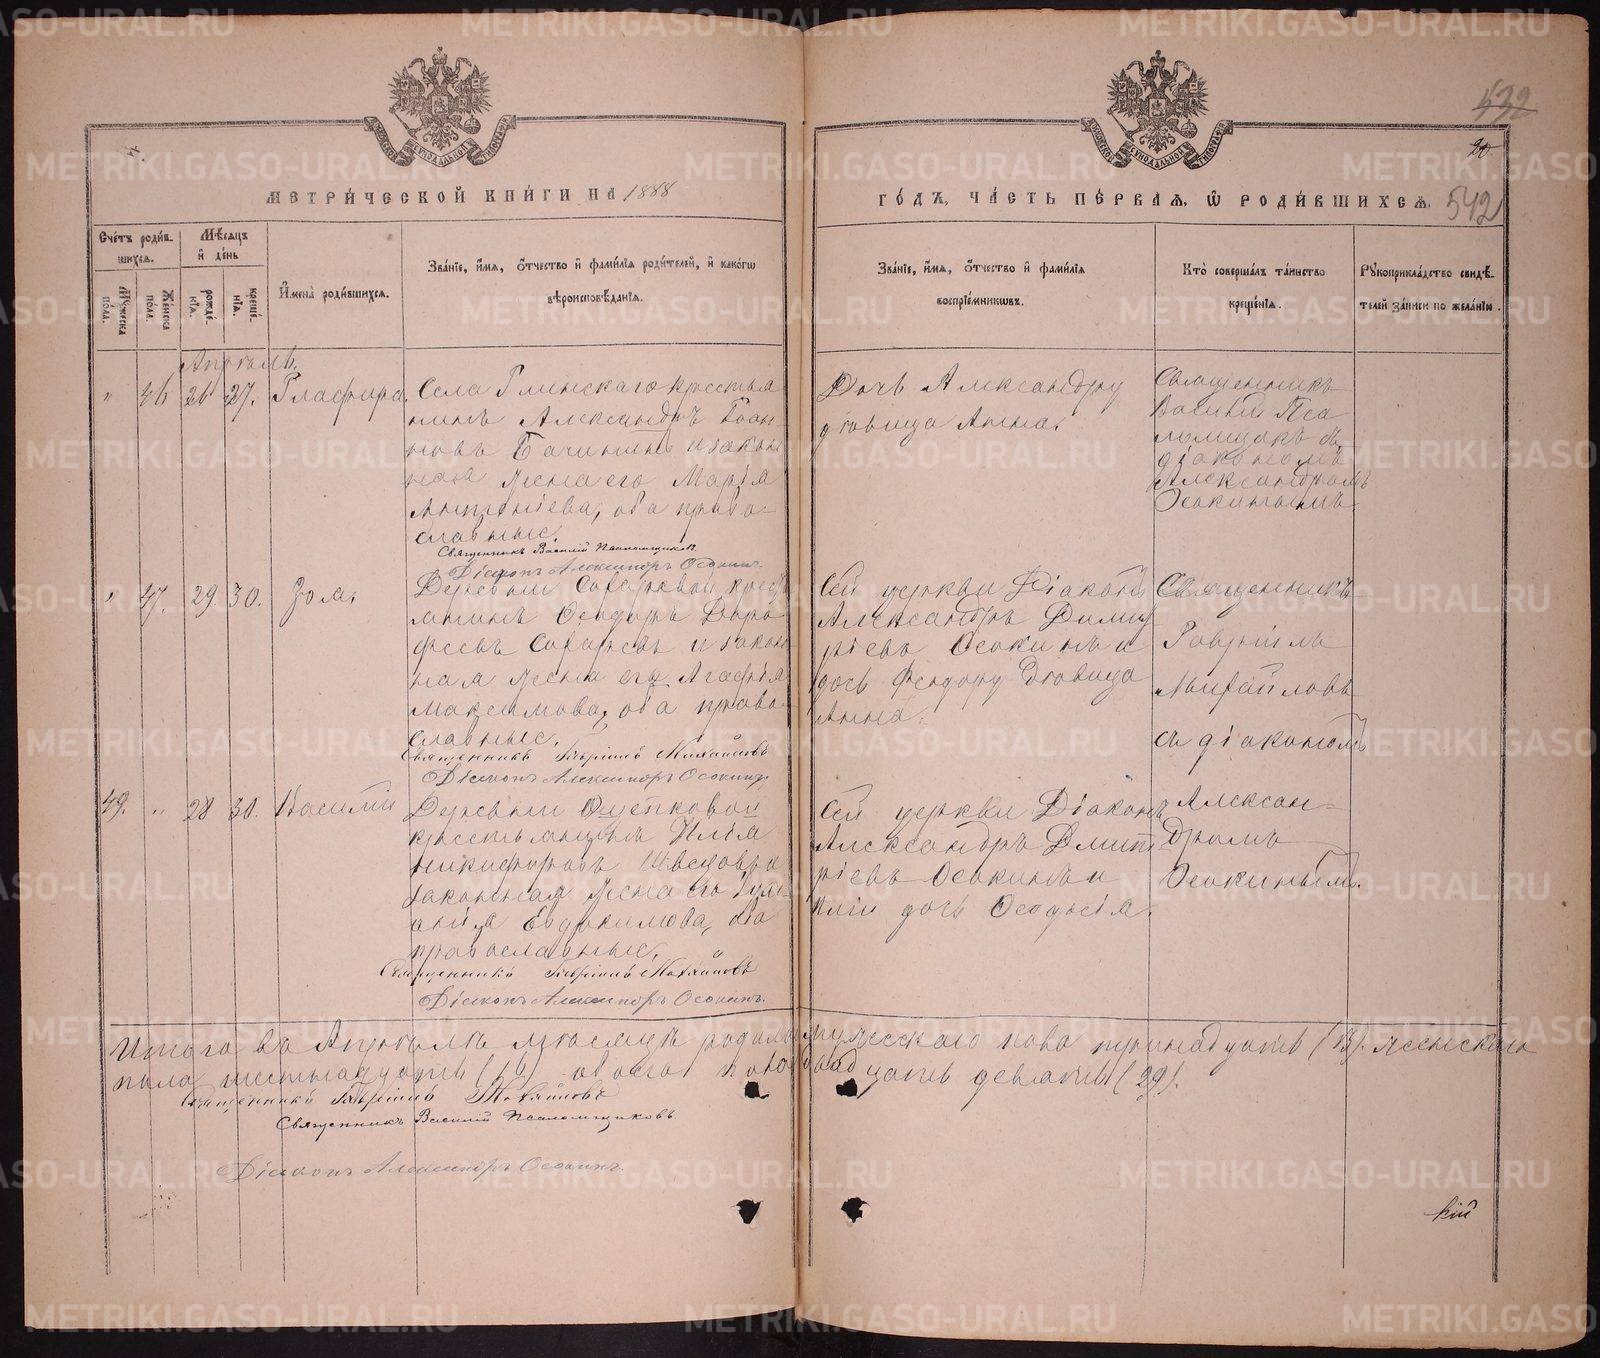 532
20
МЕТРИ́ЧЕСКОЙ КНИ́ГИ НА 1888
ГО́ДЪ, ЧА́СТЬ ПЕ́РВАЯ, Ѡ РОДИ́ВШИХСЯ.
542
Сче́тъ роди́в-
шихся.
Мѣ́сяцъ
и де́нь
Му́жеска
по́ла.
Же́нска
по́ла.
рожде́-
нія.
креще́-
нія.
И҆мена̀ роди́вшихся.
Зва́нїе, и҆́мя, ѻ҆́тчество и҆ фами́лїя роди́телей, и҆ како́гѡ
вѣроисповѣ́данїя.
Зва́нїе, и҆́мя, ѻ҆́тчество и҆ фами́лїя
воспрїе́мникѡвъ.
Кто̀ соверша́лъ та́инство
креще́нїя.
Рꙋкоприкла́дство свидѣ́-
телей за́писи по жела́нїю.
Апрѣль.
" 46 26 27. Глафира.
Села Глинскаго крестья
нинъ Александръ Іоан
новъ Бачининъ и закон
ная жена его Марія
, оба право-
славные.
Священникъ Василій Псаломщиковъ.
Діаконъ Александръ Осокинъ.
Дочь Александру
дѣвица Анна.
Священникъ
Василій Пса
ломщиковъ съ
діакономъ
Александромъ
Осокинымъ.
" 47. 29. 30. Зоя.
Деревни крестья
нинъ Ѳеодоръ Доро
феевъ и закон
ная жена его Агафія
Максимова, оба право-
славные.
Священникъ Гавріилъ Михайловъ
Діаконъ Александръ Осокинъ.
Сей церкви Діаконъ
Александръ Димит
ріевъ Осокинъ и
дочь Феодору дѣвица
Анна.
Священникъ
Гавріилъ
Михайловъ
съ діакономъ
Александромъ
Осокинымъ.
49. " 28 30. Василій
Деревни Ощепковой
крестьянинъ Илія
Никифоровъ Шведовъ и
законная жена его Іули
анія Евдокимова, оба
православные.
Священникъ Гавріилъ Михайловъ
Діаконъ Александръ Осокинъ.
Сей церкви Діаконъ
Александръ Дмит
ріевъ Осокинъ и
Иліи дочь Ѳеодосія.
Итого въ Апрѣлѣ мѣсяцѣ родил. мужескаго пола тринадцать (13). женскаго
пола шестнадцать (16) обоего пола двадцать девять (29).
Священникъ Гавріилъ Михайловъ
Священникъ Василій Псаломщиковъ.
Діаконъ Александръ Осокинъ.
кій
METRIKI.GASO-URAL.RU